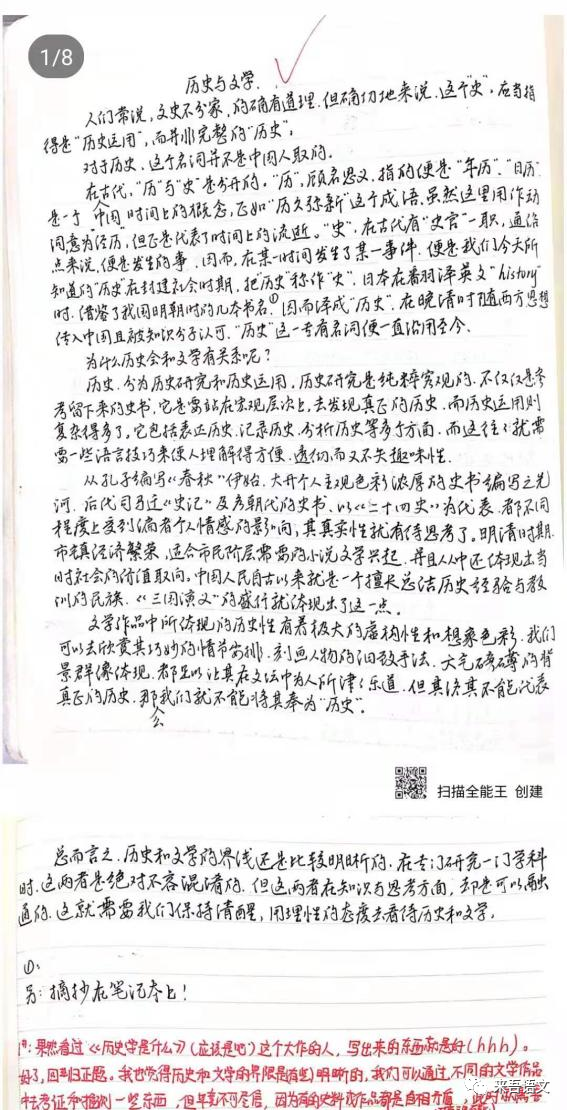 1/8
历史与文学.
人们常说,文史不分家,的确有道理.但确切地来说.这个"史",应当指
得是"历史运用",而并非完整的"历史".
对于历史.这个名词并不是中国人取的.
在古代,"历"与"史"是分开的."历",顾名思义.指的便是"年历"."日历"
是一个 中国时间上的概念,正如"历久弥新"这个成语.虽然这里用作动
词意为"经历",但正是代表了时间上的流逝。"史".在古代有"史官"一职,通俗
点来说,便是发生的事.因而,在某一时间发生了某一事件.便是我们今天所
知道的"历史"在封建社会时期.把"历史"称作"史".日本在翻译英文"history"
时.借鉴了我国明朝时的几本书名①.因而译成"历史".在晚清时随西方思想
传入中国且被知识分子认可."历史"这一专有名词便一直沿用至今.
为什么历史会和文学有关系呢?
历史.分为历史研究和历史运用.历史研究是纯粹客观的.不仅仅是参
考留下来的史书.它是需站在宏观层次上.去发现真正的历史.而历史运用则
复杂得多了.它包括表述历史.记录历史.分析历史等多个方面.而这往往就需
要一些语言技巧来使人理解得方便.透彻而又不失趣味性.
从孔子编写《春秋》伊始.大开个人主观色彩浓厚的史书编写之先
河.后代司马迁《史记》及各朝代的史书.以《二十四史》为代表.都不同
程度上受到编者个人情感的影响,其真实性就有待思考了。明清时期.
市镇经济繁荣,适合市民阶层需要的小说文学兴起.并且从中还体现出当
时社会的价值取向.中国人民自古以来就是一个擅长总结历史经验与教
训的民族.《三国演义》的盛行就体现出了这一点。
文学作品中所体现的历史性有着极大的虚构性和想象色彩.我们
可以去欣赏其巧妙的情节安排.刻画人物的细致手法.大气磅礴的背
景群像体现.都足以让其在文坛中为人所津津乐道.但其终其不能代表
真正的历史.那我们就不能将其奉为"历史".
公
扫描全能王 创建
总而言之.历史和文学的界线还是比较明晰的.在专门研究一门学科
时.这两者是绝对不容混淆的.但这两者在知识与思考方面.却是可以融
通的.这就需要我们保持清醒,用理性的态度去看待历史和文学.
①:
另:摘抄在笔记本上!
果然看过《历史学是什么》(应该是吧)这个大作的人,写出来的东西就是好(hhh)。
好了,回到正题。我也觉得历史和文学的界限是清晰明晰的,我们可以通过不同的文学作品
去考证和推测一些东西,但毕竟不可尽信,因为有的史料或作品都是自相矛盾
来吾语文